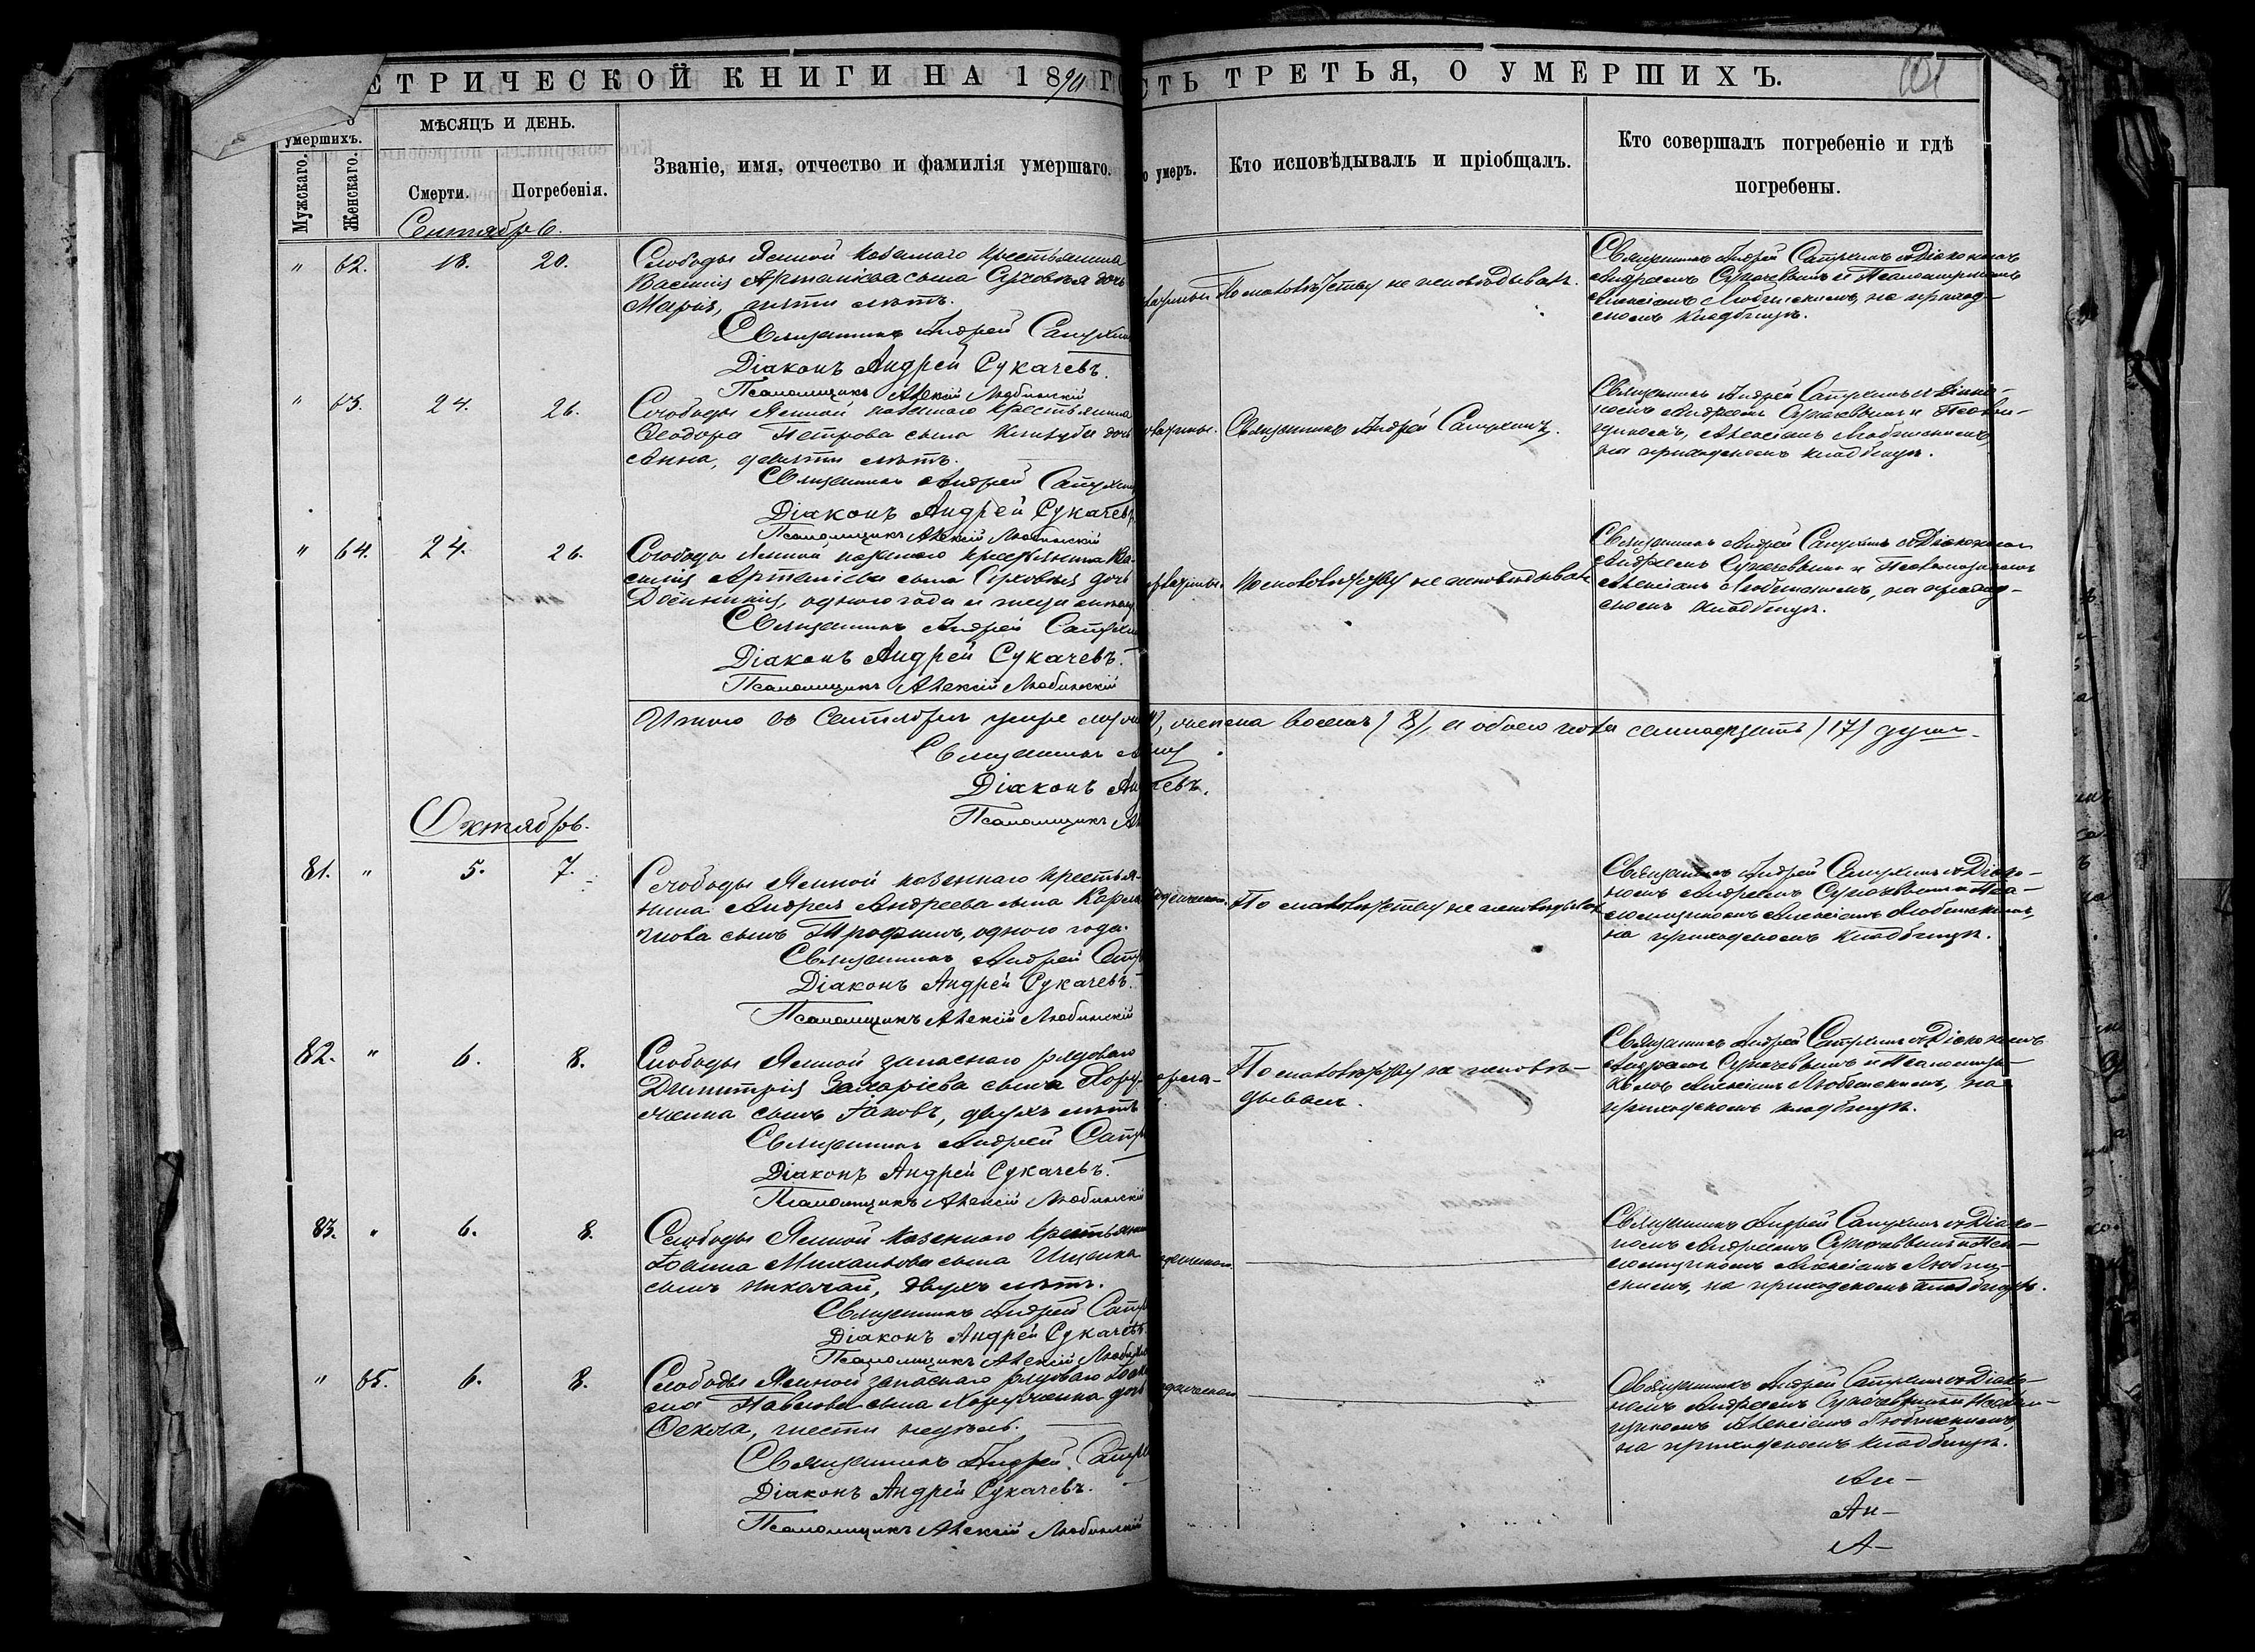 ЕТРИЧЕСКОЙ КНИГИ НА 18 ГО
СТЬ ТРЕТЬЯ, О УМЕРШИХЪ.
101
умершихъ.
Мужскаго.
Женскаго.
МѢСЯЦЪ И ДЕНЬ.
Смерти.
Погребенія.
Званіе, имя, отчество и фамилія умершаго.
о умеръ.
Кто исповѣдывалъ и пріобщалъ.
Кто совершалъ погребеніе и гдѣ
погребены.
Сентябрь.
" 62. 18. 20.
Слободы Ямной казеннаго крестьянина
Василія сына дочь
Марія, пяти лѣтъ.
Священникъ Андрей
Діаконъ Андрей Сукачевъ.
Псаломщикъ Алексій Любинскій
По малолѣтству не исповѣдыван.
Священникъ Андрей съ Діакономъ
Андреемъ Сукачевымъ и Псаломщикомъ
Алексіемъ Любинскимъ, на приход-
скомъ кладбищѣ.
" 63. 24. 26.
Слободы Ямной казеннаго крестьянина
Ѳеодора Петрова сына дочь
Анна, девяти лѣтъ.
Священникъ Андрей
Діаконъ Андрей Сукачевъ
Псаломщикъ Алексій Любинскій
Священникъ Андрей
Священникъ Андрей съ Діако-
номъ Андреемъ Сукачевымъ и
Алексіемъ Любинскимъ,
на приходскомъ кладбищѣ.
" 64. 24. 26.
Слободы Ямной казеннаго крестьянина Ва-
силія сына дочь
одного года и
Священникъ Андрей
Діаконъ Андрей Сукачевъ.
Псаломщикъ Алексій Любинскій
По малолѣтству не исповѣдыван
Священникъ Андрей съ Діакономъ
Андреемъ Сукачевымъ и Псаломщикомъ
Алексіемъ Любинскимъ, на приход-
скомъ кладбищѣ.
Итого въ Сентябрѣ умерло
восемь (8), а обоего пола семнадцать (17) душъ
Священникъ
Діаконъ Ан
чевъ.
Псаломщикъ
Октябрь.
81. " 5. 7.
Слободы Ямной казеннаго крестья-
нина Андрея Андреева сына
сынъ Трофимъ, одного года.
Священникъ Андрей
Діаконъ Андрей Сукачевъ.
Псаломщикъ Алексій Любинскій
По малолѣтству не исповѣдыван
Священникъ Андрей съ Діако-
номъ Андреемъ Сукачевымъ и Пса-
ломщикомъ Алексіемъ Любинскимъ,
на приходскомъ кладбищѣ.
82. " 6. 8.
Слободы Ямной запаснаго рядоваго
Димитрія Захаріева сына Хору-
женка сынъ Іаковъ, двухъ лѣтъ
Священникъ Андрей
Діаконъ Андрей Сукачевъ.
Псаломщикъ Алексій Любинскій
По малолѣтству не исповѣ-
дыван.
Священникъ Андрей съ Діакономъ
Андреемъ Сукачевымъ и Псаломщи-
комъ Алексіемъ Любинскимъ, на
приходскомъ кладбищѣ.
83. " 6. 8.
Слободы Ямной казеннаго крестьянина
Іоанна Михаилова сына Ищенка
сынъ Николай, двухъ лѣтъ.
Священникъ Андрей
Діаконъ Андрей Сукачевъ
Псаломщикъ Алексій
Священникъ Андрей съ Діако-
номъ Андреемъ Сукачевымъ и Пса-
ломщикомъ Алексіемъ Любин-
скимъ, на приходскомъ кладбищѣ.
" 65. 6. 8.
Слободы Ямной запаснаго рядоваго
Павлова сына дочь
Ѳекла, шести недѣль.
Священникъ Андрей
Діаконъ Андрей Сукачевъ.
Псаломщикъ Алексій Любинскій
Священникъ Андрей съ Діако-
номъ Андреемъ Сукачевымъ и
Алексіемъ Любинскимъ,
на приходскомъ кладбищѣ.
Ан-
Ан-
А-